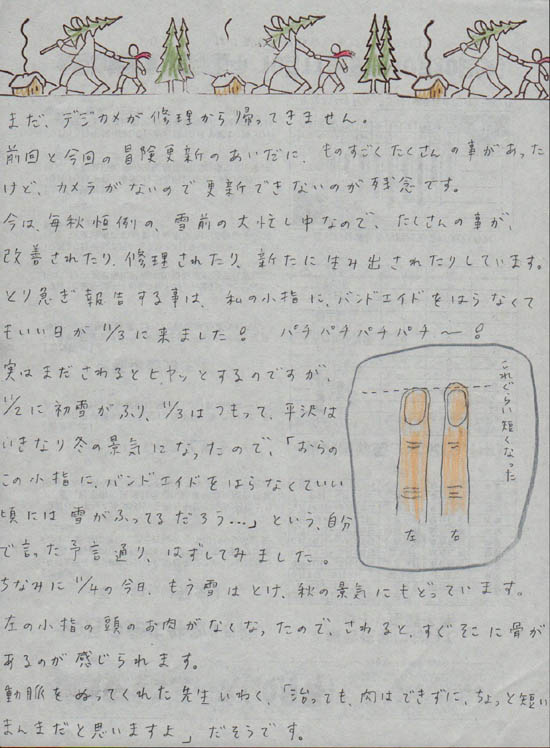 まだ、デジカメが修理から帰ってきません。
前回と今回の冒険更新のあいだに、ものすごくたくさんの事があった
けど、カメラがないので更新できないのが残念です。
今は、毎秋恒例の、雪前の大忙し中なので、たくさんの事が、
改善されたり、修理されたり、新たに生み出されたりしています。
とり急ぎ報告する事は、私の小指に、バンドエイドをはらなくて
もいい日が11/3に来ました! パチパチパチパチ〜!
実はまださわるとヒヤッとするのですが、
11/2に初雪がふり、11/3はつもって、平沢は
いきなり冬の景気になったので、「おらの
この小指に、バンドエイドをはらなくていい
頃には雪がふってるだろう...」という、自分
で言った予言通り、はずしてみました。
ちなみに11/4の今日、もう雪はとけ、秋の景気にもどっています。
左の小指の頭のお肉がなくなったので、さわると、すぐそこに骨が
あるのが感じられます。
動脈をぬってくれた先生いわく、「治っても、肉はできずに、ちょっと短い
まんまだと思いますよ」だそうです。
これぐらい短くなった
左 右